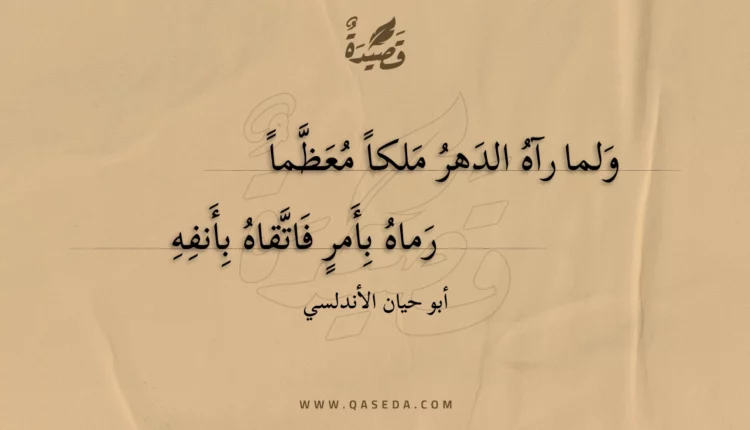 قَصِيْدَةٌ
وَلما رآهُ الدَهرُ مَلكاً مُعَظَّماً
رَماهُ بِأَمرٍ فَاتَّقاهُ بِأَنفِهِ
أبو حيان الأندلسي
WWW.QASEDA.COM